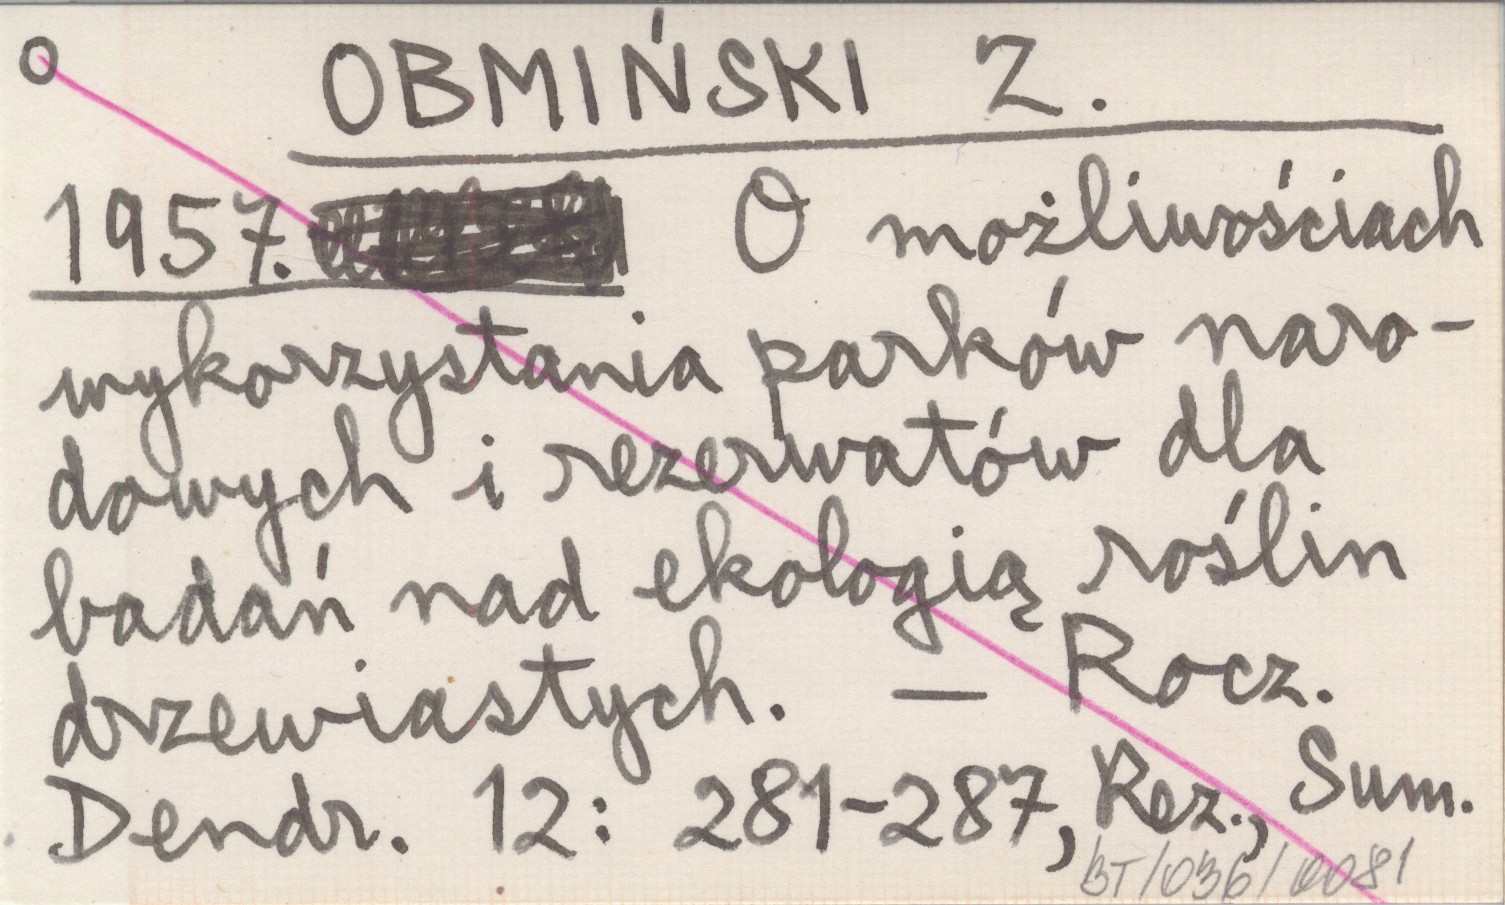 o
OBMIŃSKI Z.
1957. O możliwościach
wykorzystania parków naro-
dowych i rezerwatów dla
badań nad ekologią roślin
drzewiastych. — Rocz.
Dendr. 12: 281-287, Rez., Sum.
BT/036/0081